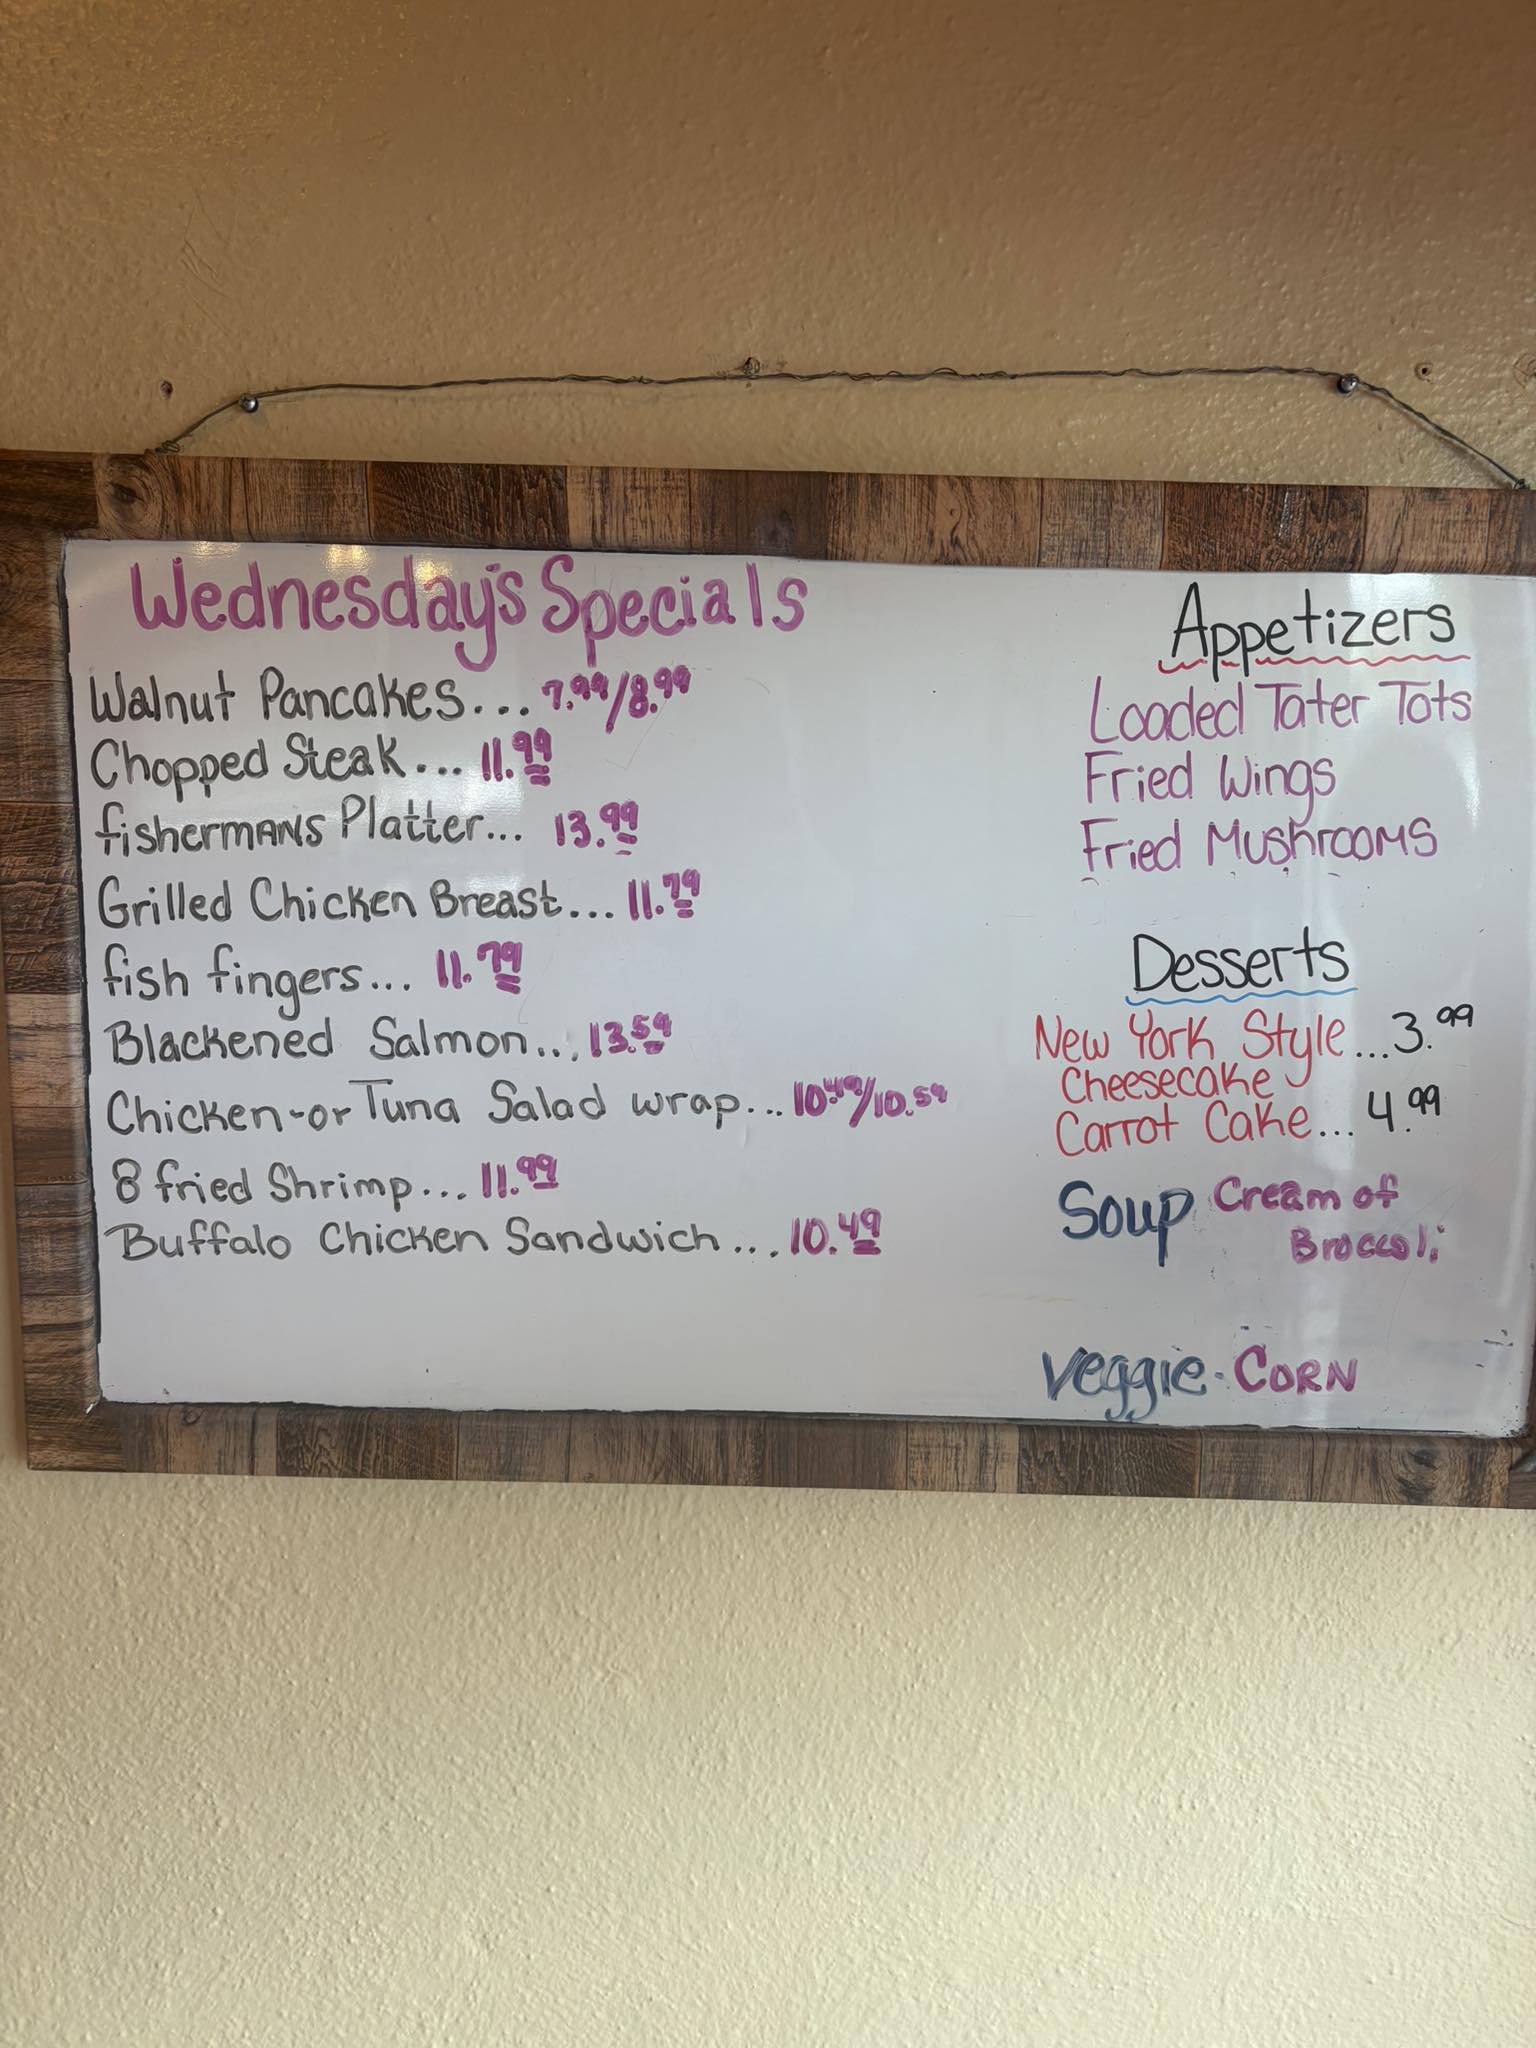 Wednesday's Specials
Walnut Pancakes... 7.99/8.99
Chopped Steak... 11.99
fishermans Platter... 13.99
Grilled Chicken Breast... 11.79
fish fingers... 11.79
Blackened Salmon... 13.59
Chicken-or Tuna Salad wrap... 10.49/10.59
8 fried Shrimp... 11.99
Buffalo Chicken Sandwich... 10.49
Appetizers
Loaded Tater Tots
Fried Wings
Fried Mushrooms
Desserts
New York Style...3.99
Cheesecake
Carrot Cake... 4.99
Soup Cream of
Broccoli
Veggie - CORN